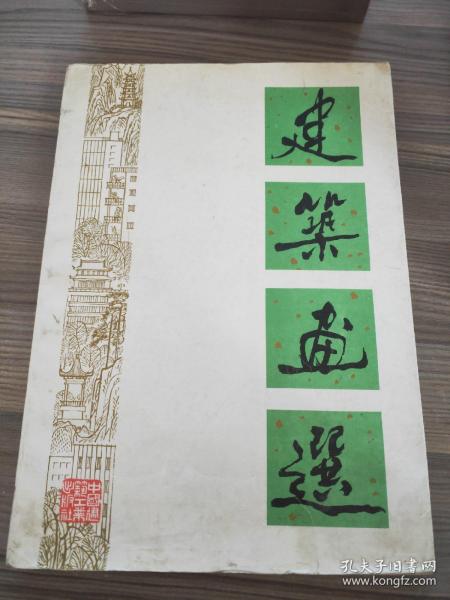 建
築
畫
選
中國建
築工業
出版社
孔夫子旧书网
www.kongfz.com